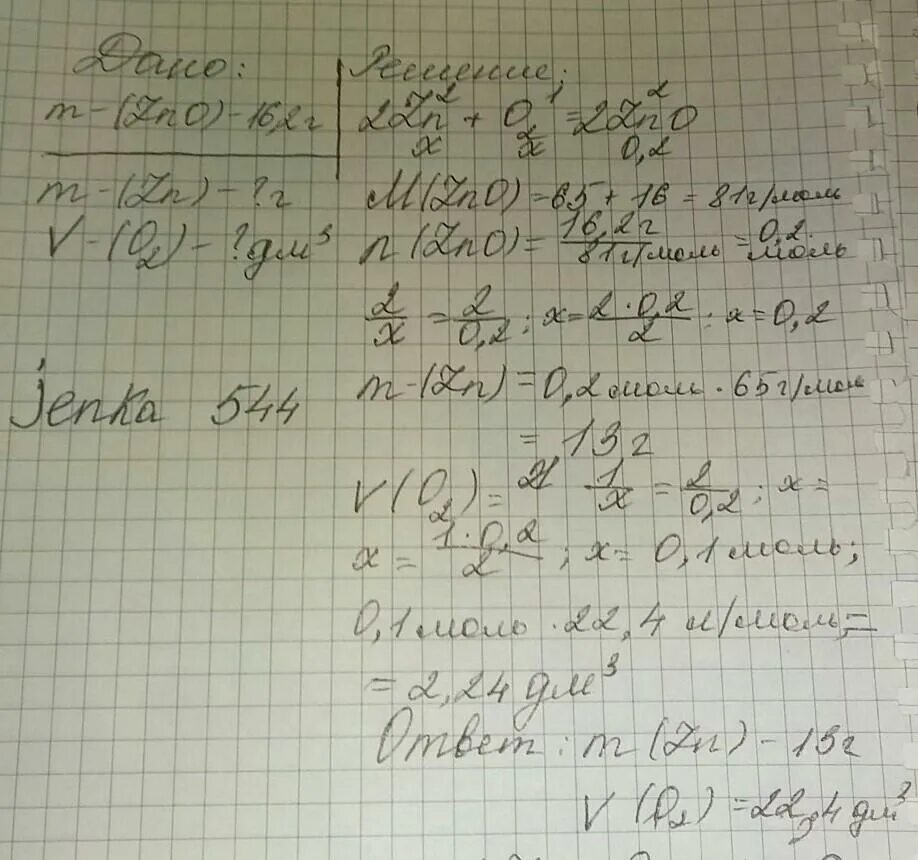 Дано:
m-(ZnO)-16,2г
m-(Zn)-?г
V-(O₂)-?дм³
jenka 544
Решение:
2 2 1 2
2Zn + O₂ = 2ZnO
x x 0,2
M(ZnO)=65+16=81г/моль
n(ZnO)=16,2г/81г/моль=0,2 моль
2/x=2/0,2; x=2·0,2/2; x=0,2
m-(Zn)=0,2мол·65г/мол
=13г
V(O₂)= 1/x=2/0,2; x=
x=1·0,2/2; x=0,1моль;
0,1моль·22,4 л/моль=
=2,24дм³
Ответ: m(Zn)-13г
V(O₂)=22,4дм³